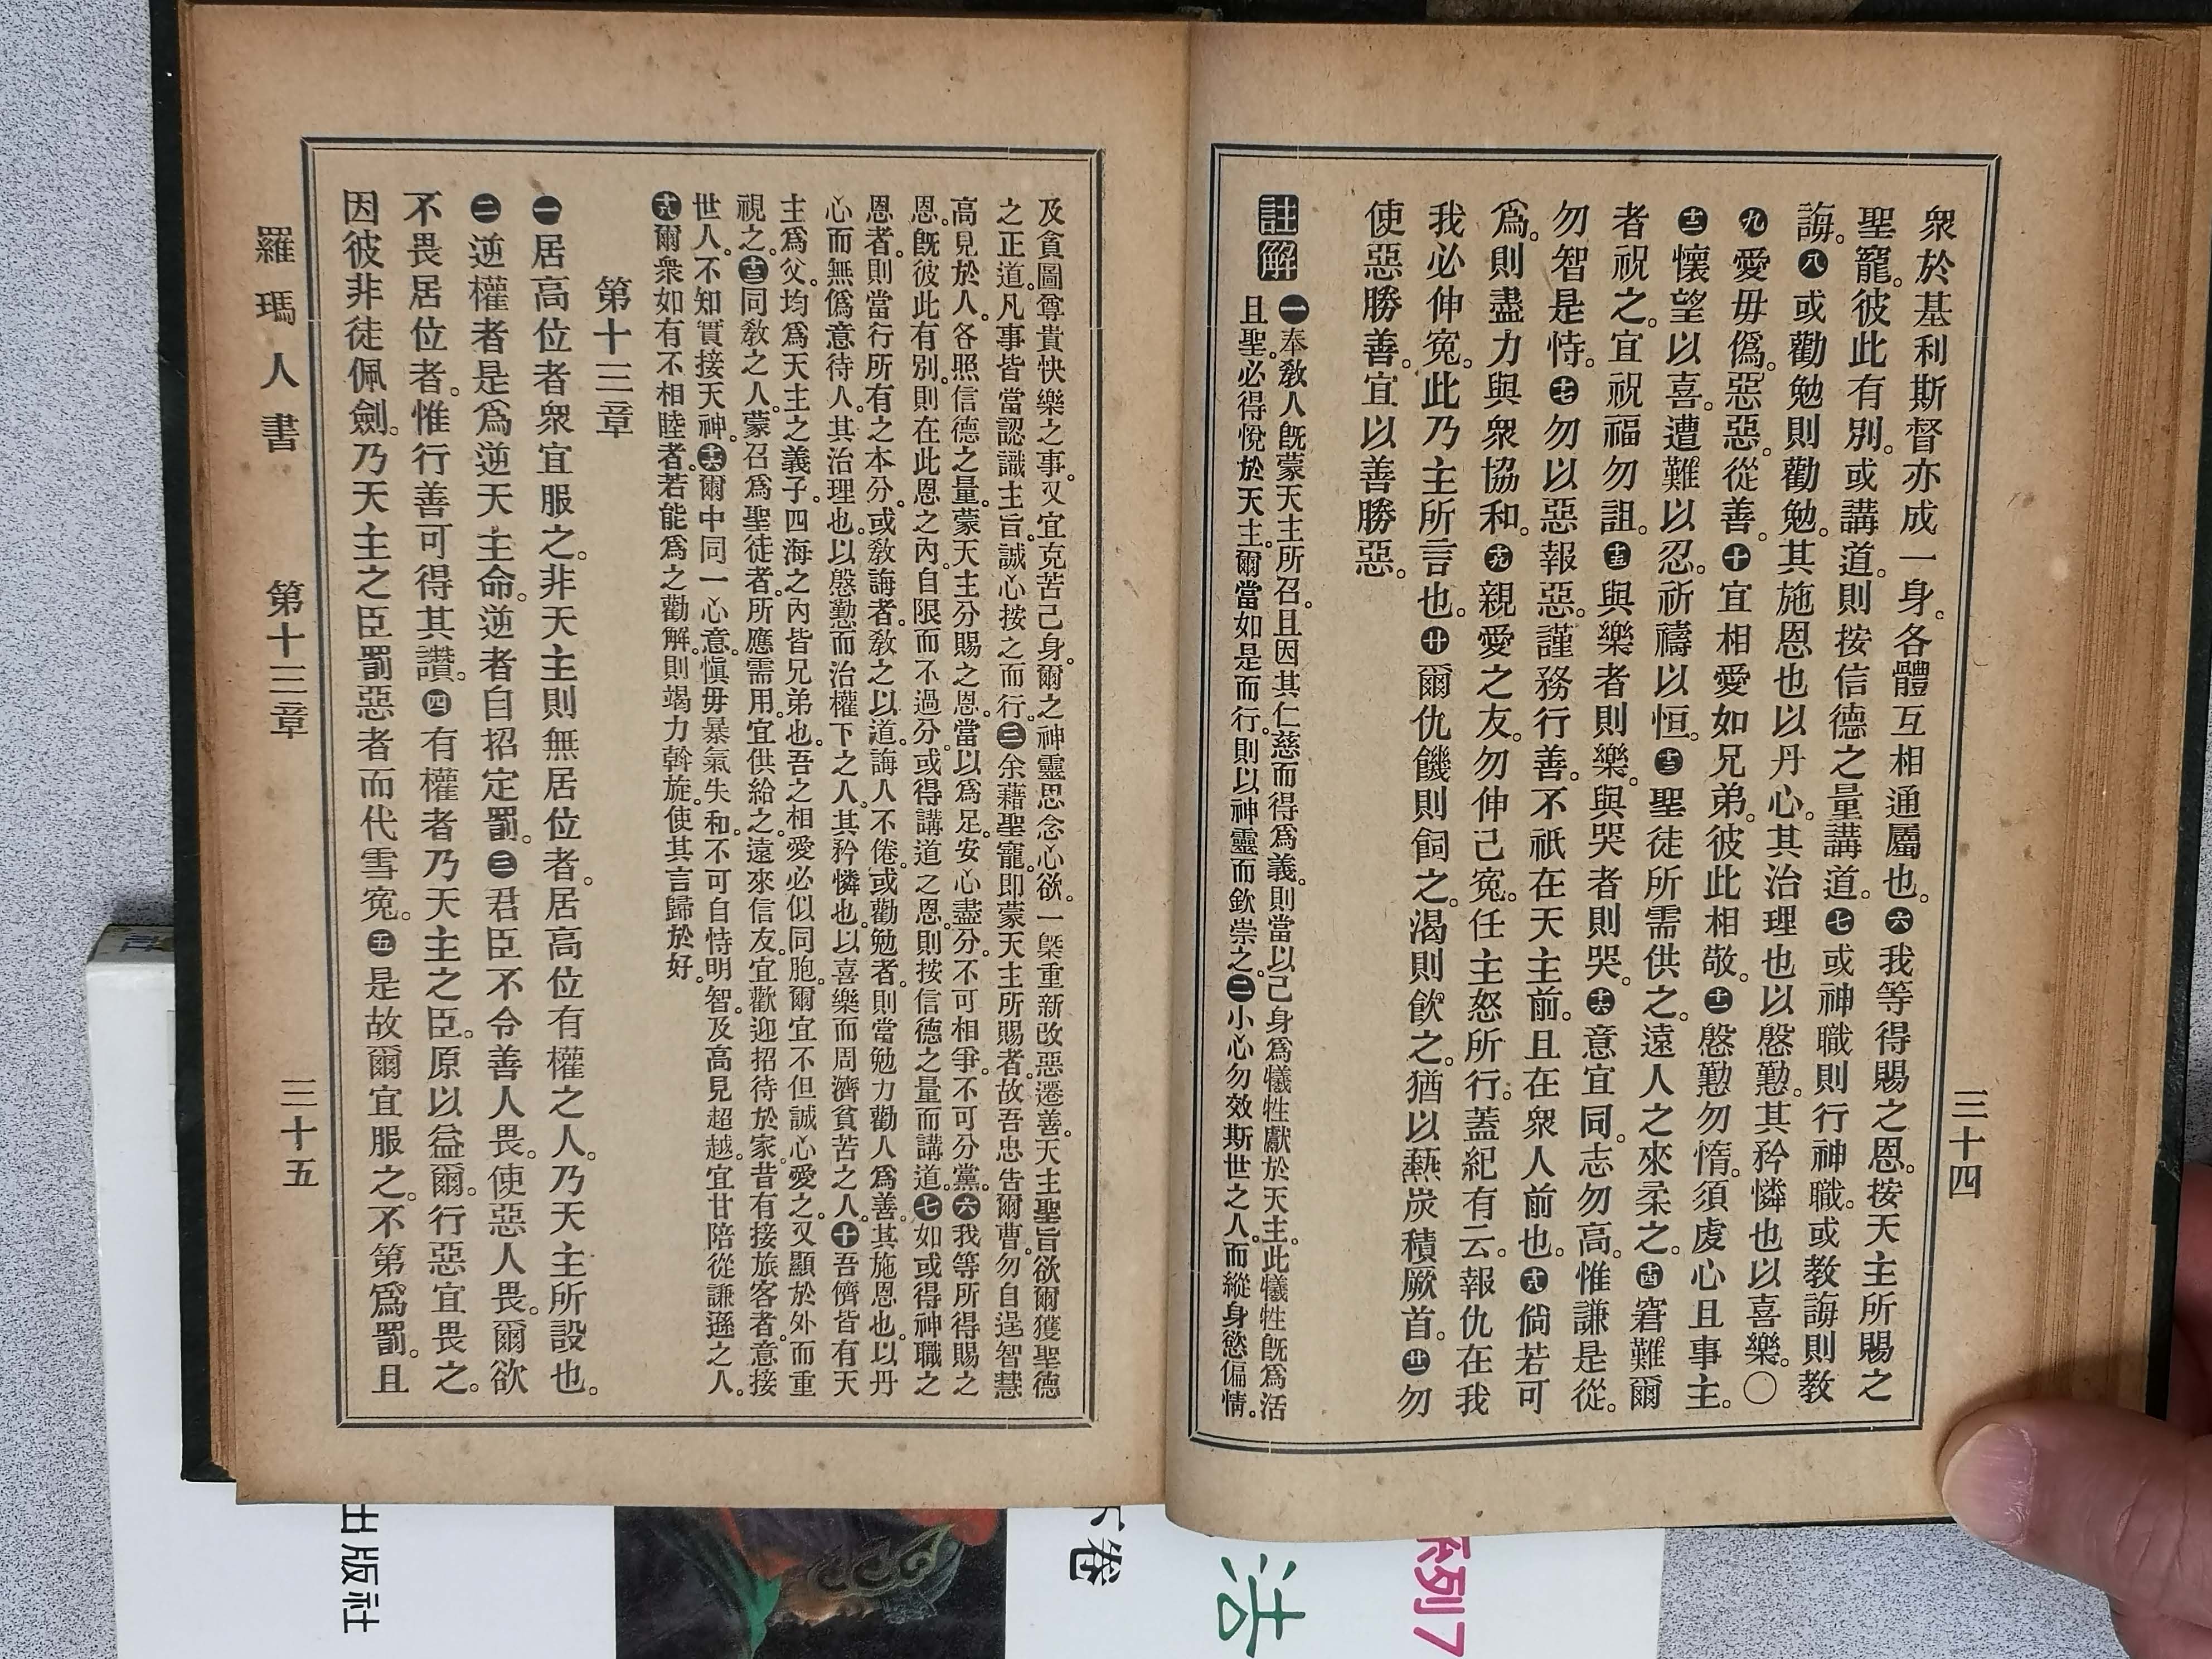 三十四
衆於基利斯督亦成一身。各體互相通屬也。㊅我等得賜之恩。按天主所賜之
聖寵。彼此有別。或講道。則按信德之量講道。㊆或神職則行神職。或教誨則教
誨。㊇或勸勉則勸勉。其施恩也以丹心。其治理也以慇懃。其矜憐也以喜樂。〇
㊈愛毋僞。惡惡。從善。㊉宜相愛如兄弟。彼此相敬。⓫慇懃勿惰。須虔心且事主。
⓬懷望以喜。遭難以忍。祈禱以恒。⓭聖徒所需供之。遠人之來柔之。⓮窘難爾
者祝之。宜祝福勿詛。⓯與樂者則樂。與哭者則哭。⓰意宜同。志勿高。惟謙是從。
勿智是恃。⓱勿以惡報惡。謹務行善。不祇在天主前。且在衆人前也。⓲倘若可
爲。則盡力與衆協和。⓳親愛之友。勿伸己寃。任主怒所行。蓋紀有云。報仇在我
我必伸寃。此乃主所言也。⓴爾仇饑則飼之。渴則飲之。猶以爇炭積厥首。㉑勿
使惡勝善。宜以善勝惡。
註解 ㊀奉敎人旣蒙天主所召。且因其仁慈而得爲義。則當以己身爲犧牲獻於天主。此犧牲旣爲活
且聖。必得悅於天主。爾當如是而行。則以神靈而欽崇之。㊁小心勿效斯世之人。而縱身慾偏情。
及貪圖尊貴快樂之事。又宜克苦己身。爾之神靈思念心欲。一槩重新改惡遷善。天主聖旨欲爾獲聖德
之正道。凡事皆當認識主旨。誠心按之而行。㊂余藉聖寵。卽蒙天主所賜者。故吾忠告爾曹。勿自逞智慧
高見於人。各照信德之量。蒙天主分賜之恩。當以爲足。安心盡分。不可相爭。不可分黨。㊅我等所得賜之
恩。旣彼此有別。則在此恩之內。自限而不過分。或得講道之恩。則按信德之量而講道。㊆如或得神職之
恩者。則當行所有之本分。或敎誨者。敎之以道。誨人不倦。或勸勉者。則當勉力勸人爲善。其施恩也。以丹
心而無僞意待人。其治理也。以慇懃而治權下之人。其矜憐也。以喜樂而周濟貧苦之人。㊉吾儕皆有天
主爲父。均爲天主之義子。四海之內皆兄弟也。吾之相愛必似同胞。爾宜不但誠心愛之。又顯於外而重
視之。⓭同敎之人。蒙召爲聖徒者。所應需用。宜供給之。遠來信友。宜歡迎招待於家。昔有接旅客者。意接
世人。不知實接天神。⓰爾中同一心意。愼毋暴氣失和。不可自恃明智。及高見超越。宜甘陪從謙遜之人。
⓲爾衆如有不相睦者。若能爲之勸解。則竭力斡旋。使其言歸於好。
第十三章
㊀居高位者衆宜服之。非天主則無居位者。居高位有權之人。乃天主所設也。
㊁逆權者是爲逆天主命。逆者自招定罰。㊂君臣不令善人畏。使惡人畏。爾欲
不畏居位者。惟行善可得其讚。㊃有權者乃天主之臣。原以益爾。行惡宜畏之。
因彼非徒佩劍。乃天主之臣罰惡者而代雪寃。㊄是故爾宜服之。不第爲罰。且
羅瑪人書 第十三章 三十五
系列7
活
下卷
出版社